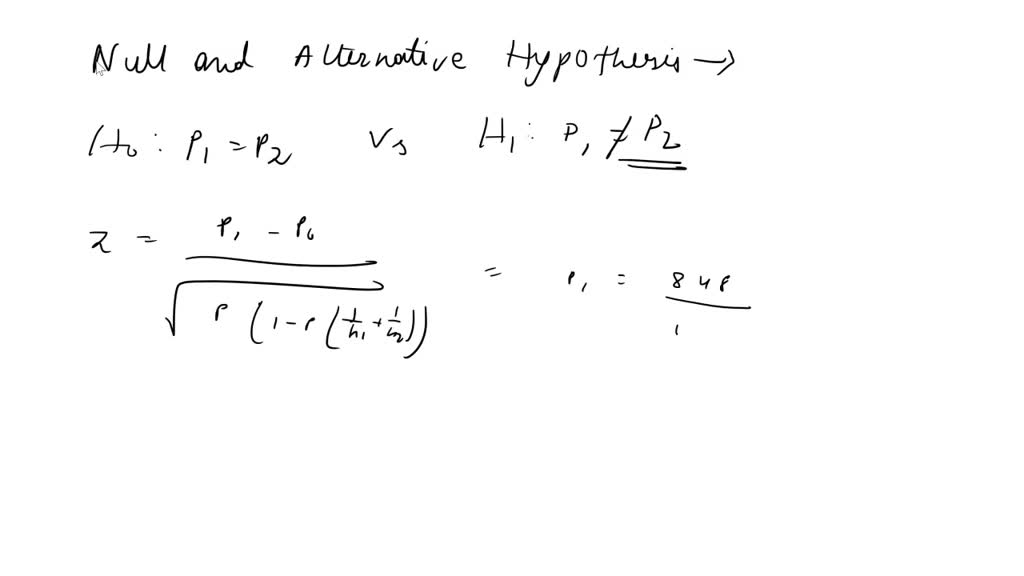 Null and Alternative Hypothesis →
H₀ : P₁ = P₂ Vs H₁ : P₁ ≠ P₂
z = P₁ - P₀ / √ P (1 - P (1/n₁ + 1/n₂)) = P₁ = 848 / 1